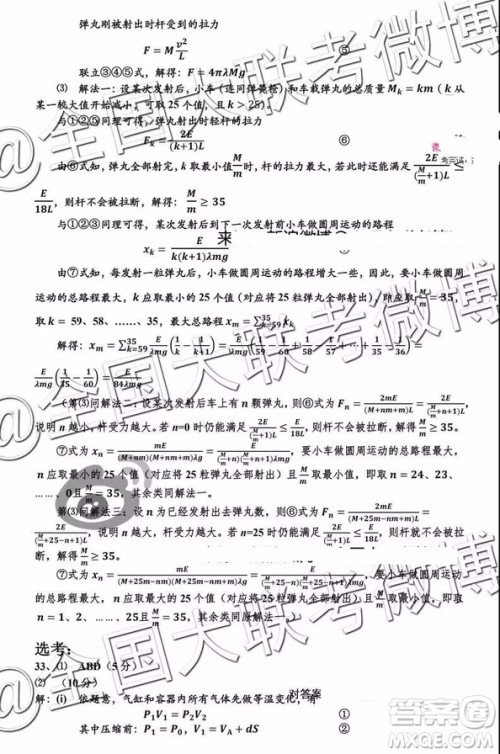 弹丸刚被射出时杆受到的拉力
F = M v²/L ⑤
联立③④⑤式，解得：F = 4πλMg
⑶ 解法一：设某次发射后，小车（连同弹簧枪）和车载弹丸的总质量 M_k = km（k 从
某一较大值开始减小，可取 25 个值，k > 25）。
与①②③同理可得，某次发射出弹丸时轻杆的拉力
F_k = 2E/((k+1)L) ⑥
由⑥式可知，弹丸全部射完，k 取最小值 M/m 时，杆的拉力最大，若此时还能满足 2E/((M/m+1)L) ≤
E/18L，则杆不会被拉断，解得：M/m ≥ 35
与①②③同理可得，某次发射后到下一次发射前小车做圆周运动的路程
x_k = E/(k(k+1)λmg)
由⑦式可知，每发射一粒弹丸，小车做圆周运动的路程增大一些，因此，要小车做圆周
运动的总路程最大，k 应取最小的 25 个值（对应将 25 粒弹丸全部射出），即应取 M/m = 35，
取 k = 59、58、……、35，最大总路程 x_m = ∑_{k=59}^{35} x_k
解得：x_m = ∑_{k=59}^{35} E/λmg (1/k − 1/(k+1)) = E/λmg (1/59 − 1/60 + 1/58 − 1/59 + ⋯ + 1/35 − 1/36) =
E/λmg (1/35 − 1/60) = E/84λmg
（第⑶问解法二：设某次发射后车上有 n 颗弹丸，则⑥式为 F_n = 2mE/((M+nm+m)L) = 2E/((M/m+n+1)L)，
说明 n 越小，杆受力越大。若 n=0 时仍能满足 2E/((M/m+1)L) ≤ E/18L，则杆不会被拉断，解得 M/m ≥ 35。
⑦式为 x_n = mE/((M+nm)(M+nm+m)λg) = E/((M/m+n)(M/m+n+1)λmg)，要小车做圆周运动的总路程最大，
n 应取最小的 25 个值（对应将 25 粒弹丸全部射出），且 M/m 应取最小值，即取 n = 24、23、
……、0且 M/m = 35，其余类同解法一。）
第⑶问解法三：设 n 为已经发射出去弹丸数，则⑥式为 F_n = 2mE/((M+25m−nm+m)L) =
2E/((M/m+25−n+1)L)，说明 n 越大，杆受力越大。若 n=25 时仍能满足 2E/((M/m+1)L) ≤ E/18L，解得 M/m ≥ 35。
⑦式为 x_n = mE/((M+25m−nm)(M+25m−nm+m)λg) = E/((M/m+25−n)(M/m+25−n+1)λmg)，要小车做圆周运动的
总路程最大，n 应取最大的 25 个值（对应将 25 粒弹丸全部射出），且 M/m 应取最小值，即取
n = 1、2、……、25，且 M/m = 35，其余类同原解法一。）
选考：
33、⑴ ABD（5 分）
⑵ （10 分）
解：(i) 依题意，气缸和容器内所有气体先做等温变化，有
对答案
P₁V₁ = P₂V₂ ①
其中压缩前：P₁ = P₀，V₁ = V_A + dS ②
@全国大联考微博
答案圈